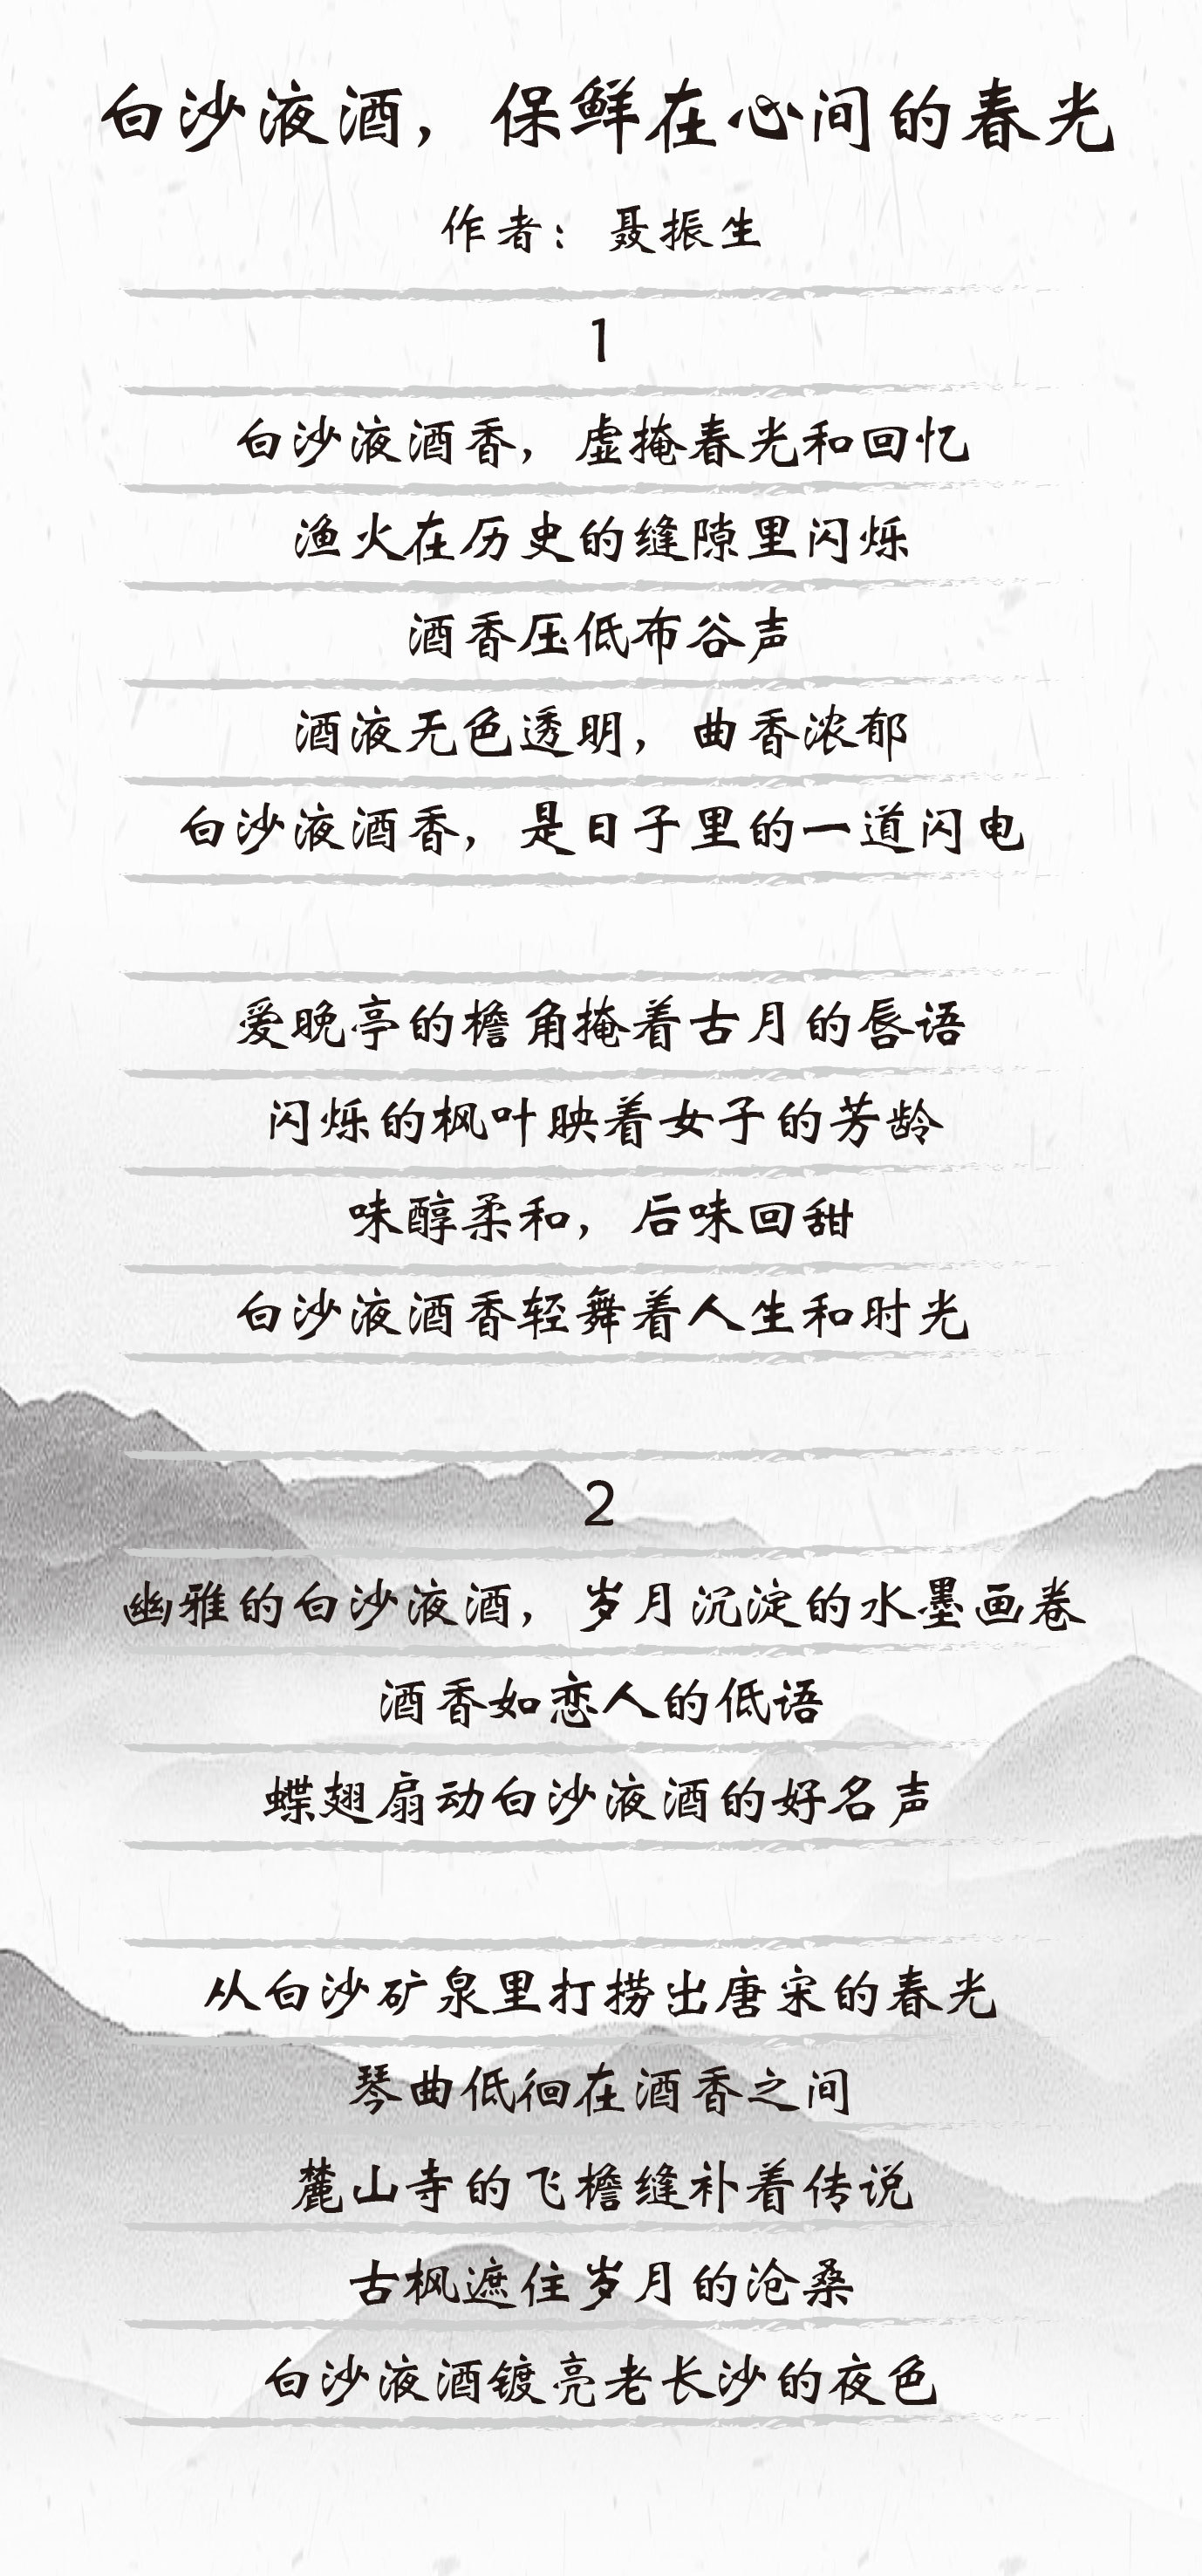 白沙液酒，保鲜在心间的春光
作者：聂振生
1
白沙液酒香，虚掩春光和回忆
渔火在历史的缝隙里闪烁
酒香压低布谷声
酒液无色透明，曲香浓郁
白沙液酒香，是日子里的一道闪电
爱晚亭的檐角掩着古月的唇语
闪烁的枫叶映着女子的芳龄
味醇柔和，后味回甜
白沙液酒香轻舞着人生和时光
2
幽雅的白沙液酒，岁月沉淀的水墨画卷
酒香如恋人的低语
蝶翅扇动白沙液酒的好名声
从白沙矿泉里打捞出唐宋的春光
琴曲低徊在酒香之间
麓山寺的飞檐缝补着传说
古枫遮住岁月的沧桑
白沙液酒镀亮老长沙的夜色